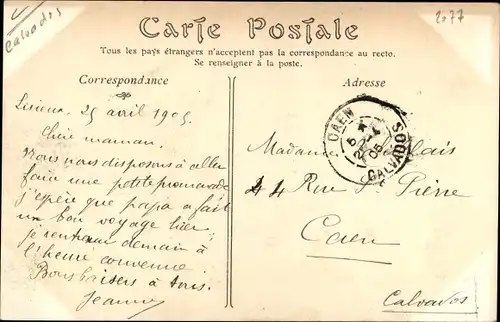 Calvados
2077
Carte Postale
Tous les pays étrangers n'acceptent pas la correspondance au recto.
Se renseigner à la poste.
Correspondance
Adresse
Lisieux 25 avril 1905
Chère maman,
Nous nous disposons à aller
faire une petite promenade
j'espère que papa a fait
un bon voyage hier,
je rentrerai demain à
l'heure convenue.
Bons baisers à tous.
Jeanne
CAEN
CALVADOS
05
Madame
44 Rue St Pierre
Caen
Calvados